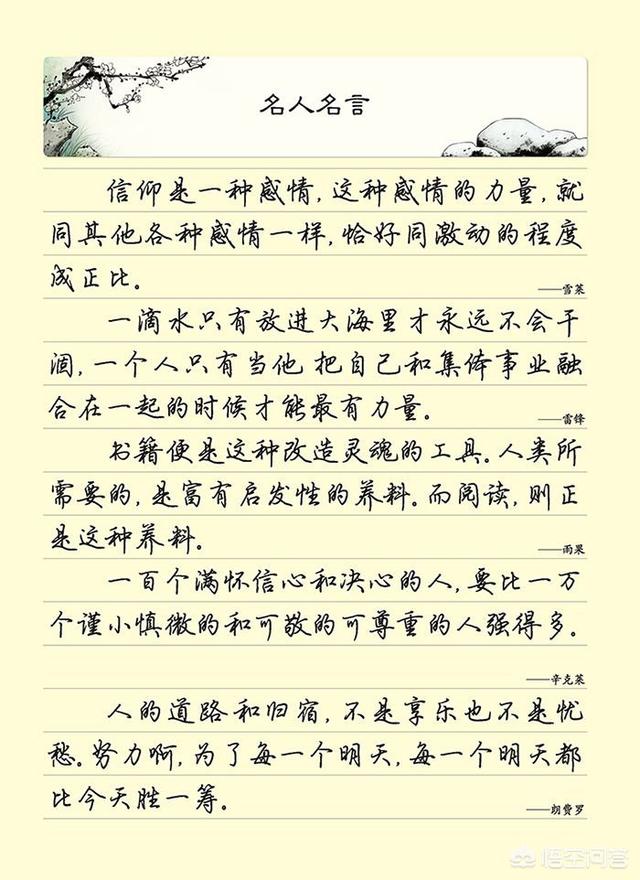 名人名言
信仰是一种感情,这种感情的力量,就
同其他各种感情一样,恰好同激动的程度
成正比。
——雪莱
一滴水只有放进大海里才永远不会干
涸,一个人只有当他把自己和集体事业融
合在一起的时候才能最有力量。
——雷锋
书籍便是这种改造灵魂的工具。人类所
需要的,是富有启发性的养料。而阅读,则正
是这种养料。
——雨果
一百个满怀信心和决心的人,要比一万
个谨小慎微的和可敬的可尊重的人强得多。
——辛克莱
人的道路和归宿,不是享乐也不是忧
愁。努力啊,为了每一个明天,每一个明天都
比今天胜一筹。
——朗费罗
悟空问答